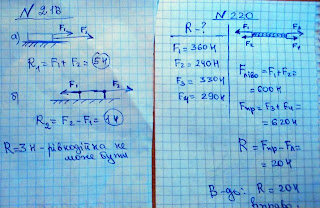 N 218
а)
F₁ F₂
R₁ = F₁ + F₂ = 5 Н
б)
F₁ F₂
R₂ = F₂ - F₁ = 1 Н
R = 3 Н - рівнодійна не
може бути
N 220
R - ?
F₁ = 360 Н
F₂ = 240 Н
F₃ = 330 Н
F₄ = 290 Н
F₁ F₃
F₂ F₄
Fліво = F₁ + F₂ =
= 600 Н
Fпр = F₃ + F₄ =
= 620 Н
R = Fпр - Fл =
= 20 Н
В-дь: R = 20 Н
вправо.